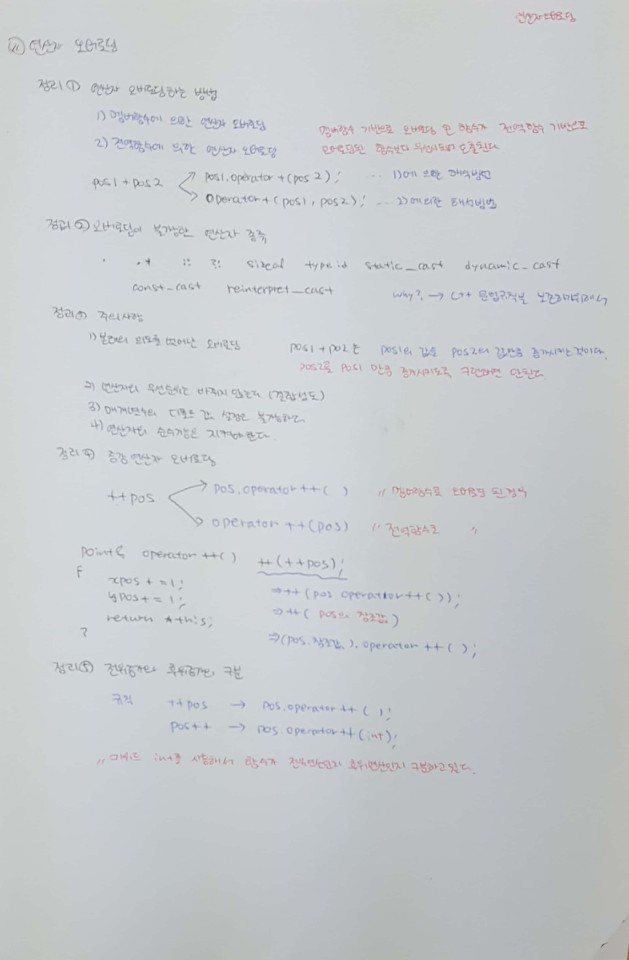 연산자 오버로딩
11) 연산자 오버로딩
정리① 연산자 오버로딩하는 방법
1) 멤버함수에 의한 연산자 오버로딩 멤버함수 기반으로 오버로딩 된 함수가 전역함수 기반으로
2) 전역함수에 의한 연산자 오버로딩 오버로딩된 함수보다 우선시되어 호출된다
pos1 + pos2 pos1.operator+(pos2); ... 1)에 의한 해석방법
operator+(pos1, pos2); ... 2)에 의한 해석방법
정리② 오버로딩이 불가능한 연산자 종류
. .* :: ?: sizeof typeid static_cast dynamic_cast
const_cast reinterpret_cast why? → C++ 문법규칙을
정리③ 주의사항
1) 본래의 의도를 벗어난 오버로딩 pos1 + po2는 pos1의 값을 pos2의 값만큼 증가시키는 것이다.
pos2를 pos1 만큼 증가시키도록 구현하면 안된다
2) 연산자의 우선순위는 바뀌지 않는다 (결합성도)
3) 매개변수의 디폴트 값 설정은 불가능하다
4) 연산자의 순수기능은 지켜야한다.
정리④ 증감 연산자 오버로딩
++pos pos.operator++( ) // 멤버함수로 오버로딩 된경우
operator++(pos) // 전역함수로 〃
point& operator++() ++(++pos);
{
xpos += 1; ⇒ ++(pos.operator++());
ypos += 1; ⇒ ++( pos의 참조값)
return *this; ⇒ (pos.참조값.).operator++( );
}
정리⑤ 전위증가와 후위증가의 구분
규칙 ++pos → pos.operator++( );
pos++ → pos.operator++(int);
// 키워드 int를 사용해서 함수가 전위연산인지 후위연산인지 구분하고있다.